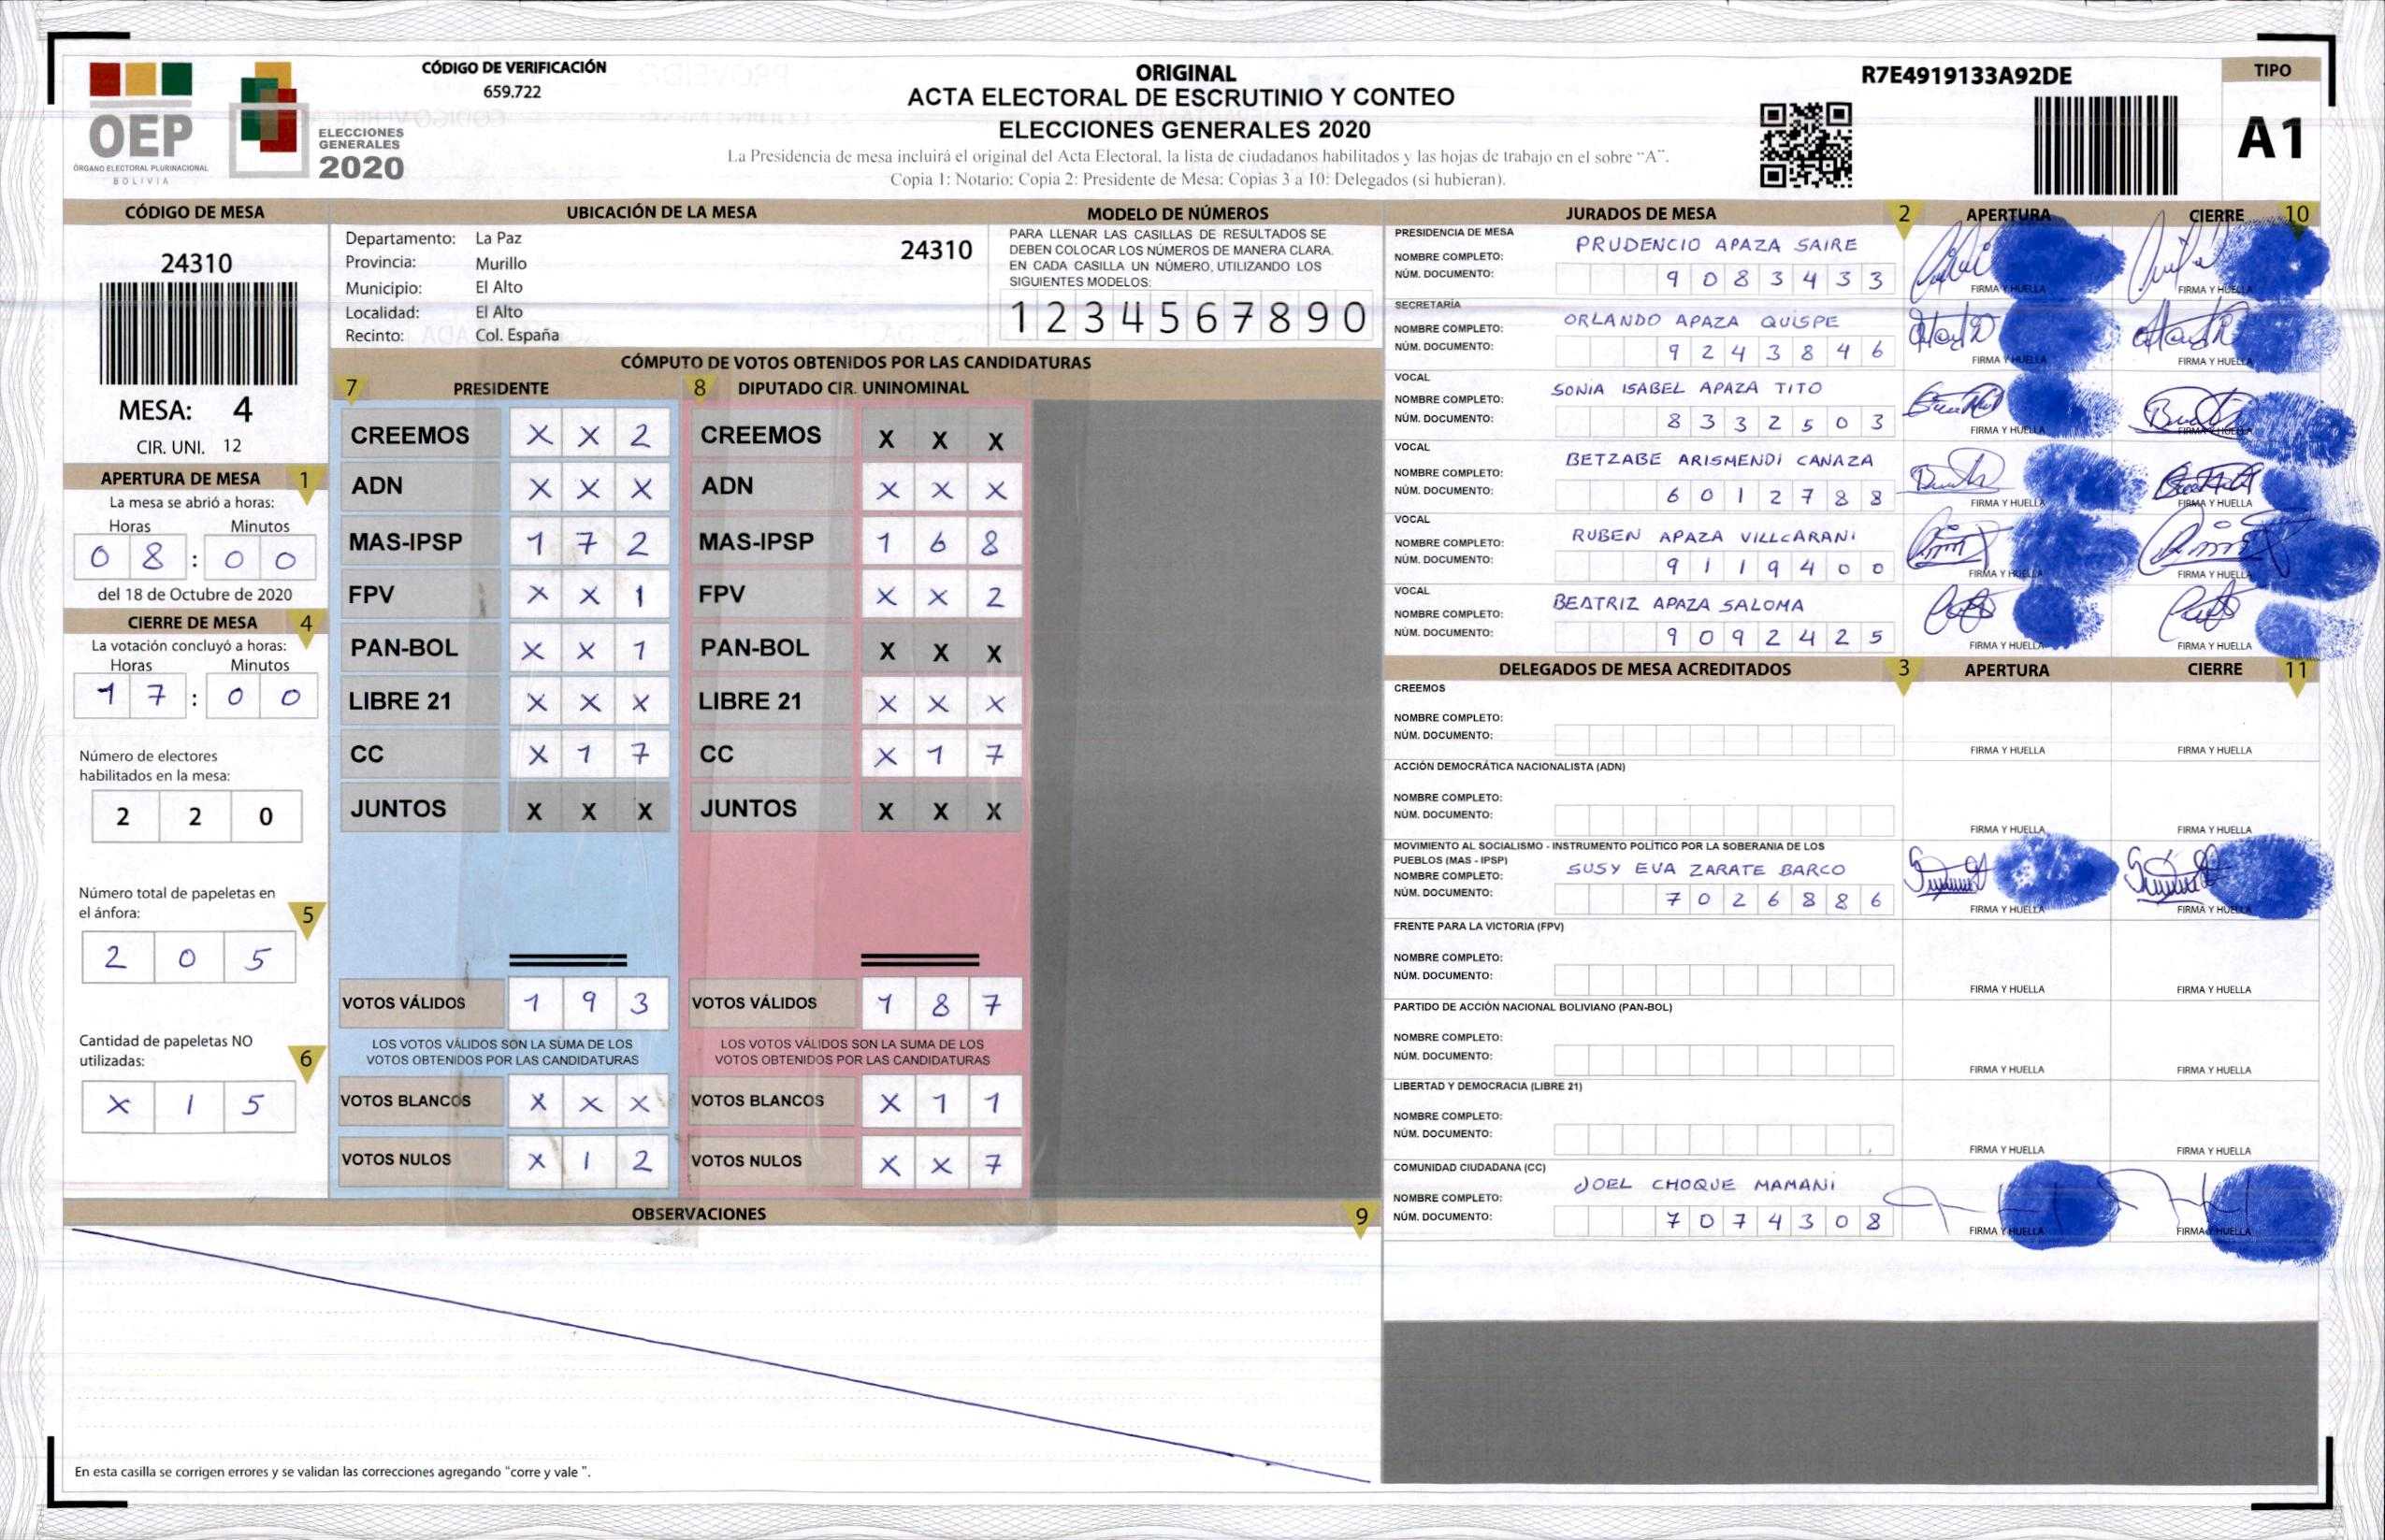 OEP
ÓRGANO ELECTORAL PLURINACIONAL
BOLIVIA
ELECCIONES
GENERALES
2020
CÓDIGO DE VERIFICACIÓN
659.722
ORIGINAL
ACTA ELECTORAL DE ESCRUTINIO Y CONTEO
ELECCIONES GENERALES 2020
La Presidencia de mesa incluirá el original del Acta Electoral, la lista de ciudadanos habilitados y las hojas de trabajo en el sobre "A".
Copia 1: Notario; Copia 2: Presidente de Mesa; Copias 3 a 10: Delegados (si hubieran).
R7E4919133A92DE
TIPO
A1
CÓDIGO DE MESA
24310
MESA: 4
CIR. UNI. 12
APERTURA DE MESA 1
La mesa se abrió a horas:
Horas Minutos
0 8 : 0 0
del 18 de Octubre de 2020
CIERRE DE MESA 4
La votación concluyó a horas:
Horas Minutos
1 7 : 0 0
Número de electores
habilitados en la mesa:
2 2 0
Número total de papeletas en
el ánfora: 5
2 0 5
Cantidad de papeletas NO
utilizadas: 6
X 1 5
UBICACIÓN DE LA MESA
Departamento: La Paz 24310
Provincia: Murillo
Municipio: El Alto
Localidad: El Alto
Recinto: Col. España
MODELO DE NÚMEROS
PARA LLENAR LAS CASILLAS DE RESULTADOS SE
DEBEN COLOCAR LOS NÚMEROS DE MANERA CLARA.
EN CADA CASILLA UN NÚMERO, UTILIZANDO LOS
SIGUIENTES MODELOS:
1 2 3 4 5 6 7 8 9 0
CÓMPUTO DE VOTOS OBTENIDOS POR LAS CANDIDATURAS
7 PRESIDENTE 8 DIPUTADO CIR. UNINOMINAL
CREEMOS X X 2 CREEMOS X X X
ADN X X X ADN X X X
MAS-IPSP 1 7 2 MAS-IPSP 1 6 8
FPV X X 1 FPV X X 2
PAN-BOL X X 1 PAN-BOL X X X
LIBRE 21 X X X LIBRE 21 X X X
CC X 1 7 CC X 1 7
JUNTOS X X X JUNTOS X X X
VOTOS VÁLIDOS 1 9 3 VOTOS VÁLIDOS 1 8 7
LOS VOTOS VÁLIDOS SON LA SUMA DE LOS LOS VOTOS VÁLIDOS SON LA SUMA DE LOS
VOTOS OBTENIDOS POR LAS CANDIDATURAS VOTOS OBTENIDOS POR LAS CANDIDATURAS
VOTOS BLANCOS X X X VOTOS BLANCOS X 1 1
VOTOS NULOS X 1 2 VOTOS NULOS X X 7
OBSERVACIONES 9
En esta casilla se corrigen errores y se validan las correcciones agregando "corre y vale ".
JURADOS DE MESA 2 APERTURA CIERRE 10
PRESIDENCIA DE MESA
NOMBRE COMPLETO: PRUDENCIO APAZA SAIRE
NÚM. DOCUMENTO: 9 0 8 3 4 3 3 FIRMA Y HUELLA FIRMA Y HUELLA
SECRETARÍA
NOMBRE COMPLETO: ORLANDO APAZA QUISPE
NÚM. DOCUMENTO: 9 2 4 3 8 4 6 FIRMA Y HUELLA FIRMA Y HUELLA
VOCAL
NOMBRE COMPLETO: SONIA ISABEL APAZA TITO
NÚM. DOCUMENTO: 8 3 3 2 5 0 3 FIRMA Y HUELLA FIRMA Y HUELLA
VOCAL
NOMBRE COMPLETO: BETZABE ARISMENDI CANAZA
NÚM. DOCUMENTO: 6 0 1 2 7 8 8 FIRMA Y HUELLA FIRMA Y HUELLA
VOCAL
NOMBRE COMPLETO: RUBEN APAZA VILLCARANI
NÚM. DOCUMENTO: 9 1 1 9 4 0 0 FIRMA Y HUELLA FIRMA Y HUELLA
VOCAL
NOMBRE COMPLETO: BEATRIZ APAZA SALOMA
NÚM. DOCUMENTO: 9 0 9 2 4 2 5 FIRMA Y HUELLA FIRMA Y HUELLA
DELEGADOS DE MESA ACREDITADOS 3 APERTURA CIERRE 11
CREEMOS
NOMBRE COMPLETO:
NÚM. DOCUMENTO: FIRMA Y HUELLA FIRMA Y HUELLA
ACCIÓN DEMOCRÁTICA NACIONALISTA (ADN)
NOMBRE COMPLETO:
NÚM. DOCUMENTO: FIRMA Y HUELLA FIRMA Y HUELLA
MOVIMIENTO AL SOCIALISMO - INSTRUMENTO POLÍTICO POR LA SOBERANIA DE LOS
PUEBLOS (MAS - IPSP)
NOMBRE COMPLETO: SUSY EVA ZARATE BARCO
NÚM. DOCUMENTO: 7 0 2 6 8 8 6 FIRMA Y HUELLA FIRMA Y HUELLA
FRENTE PARA LA VICTORIA (FPV)
NOMBRE COMPLETO:
NÚM. DOCUMENTO: FIRMA Y HUELLA FIRMA Y HUELLA
PARTIDO DE ACCIÓN NACIONAL BOLIVIANO (PAN-BOL)
NOMBRE COMPLETO:
NÚM. DOCUMENTO: FIRMA Y HUELLA FIRMA Y HUELLA
LIBERTAD Y DEMOCRACIA (LIBRE 21)
NOMBRE COMPLETO:
NÚM. DOCUMENTO: FIRMA Y HUELLA FIRMA Y HUELLA
COMUNIDAD CIUDADANA (CC)
NOMBRE COMPLETO: JOEL CHOQUE MAMANI
NÚM. DOCUMENTO: 7 0 7 4 3 0 8 FIRMA Y HUELLA FIRMA Y HUELLA